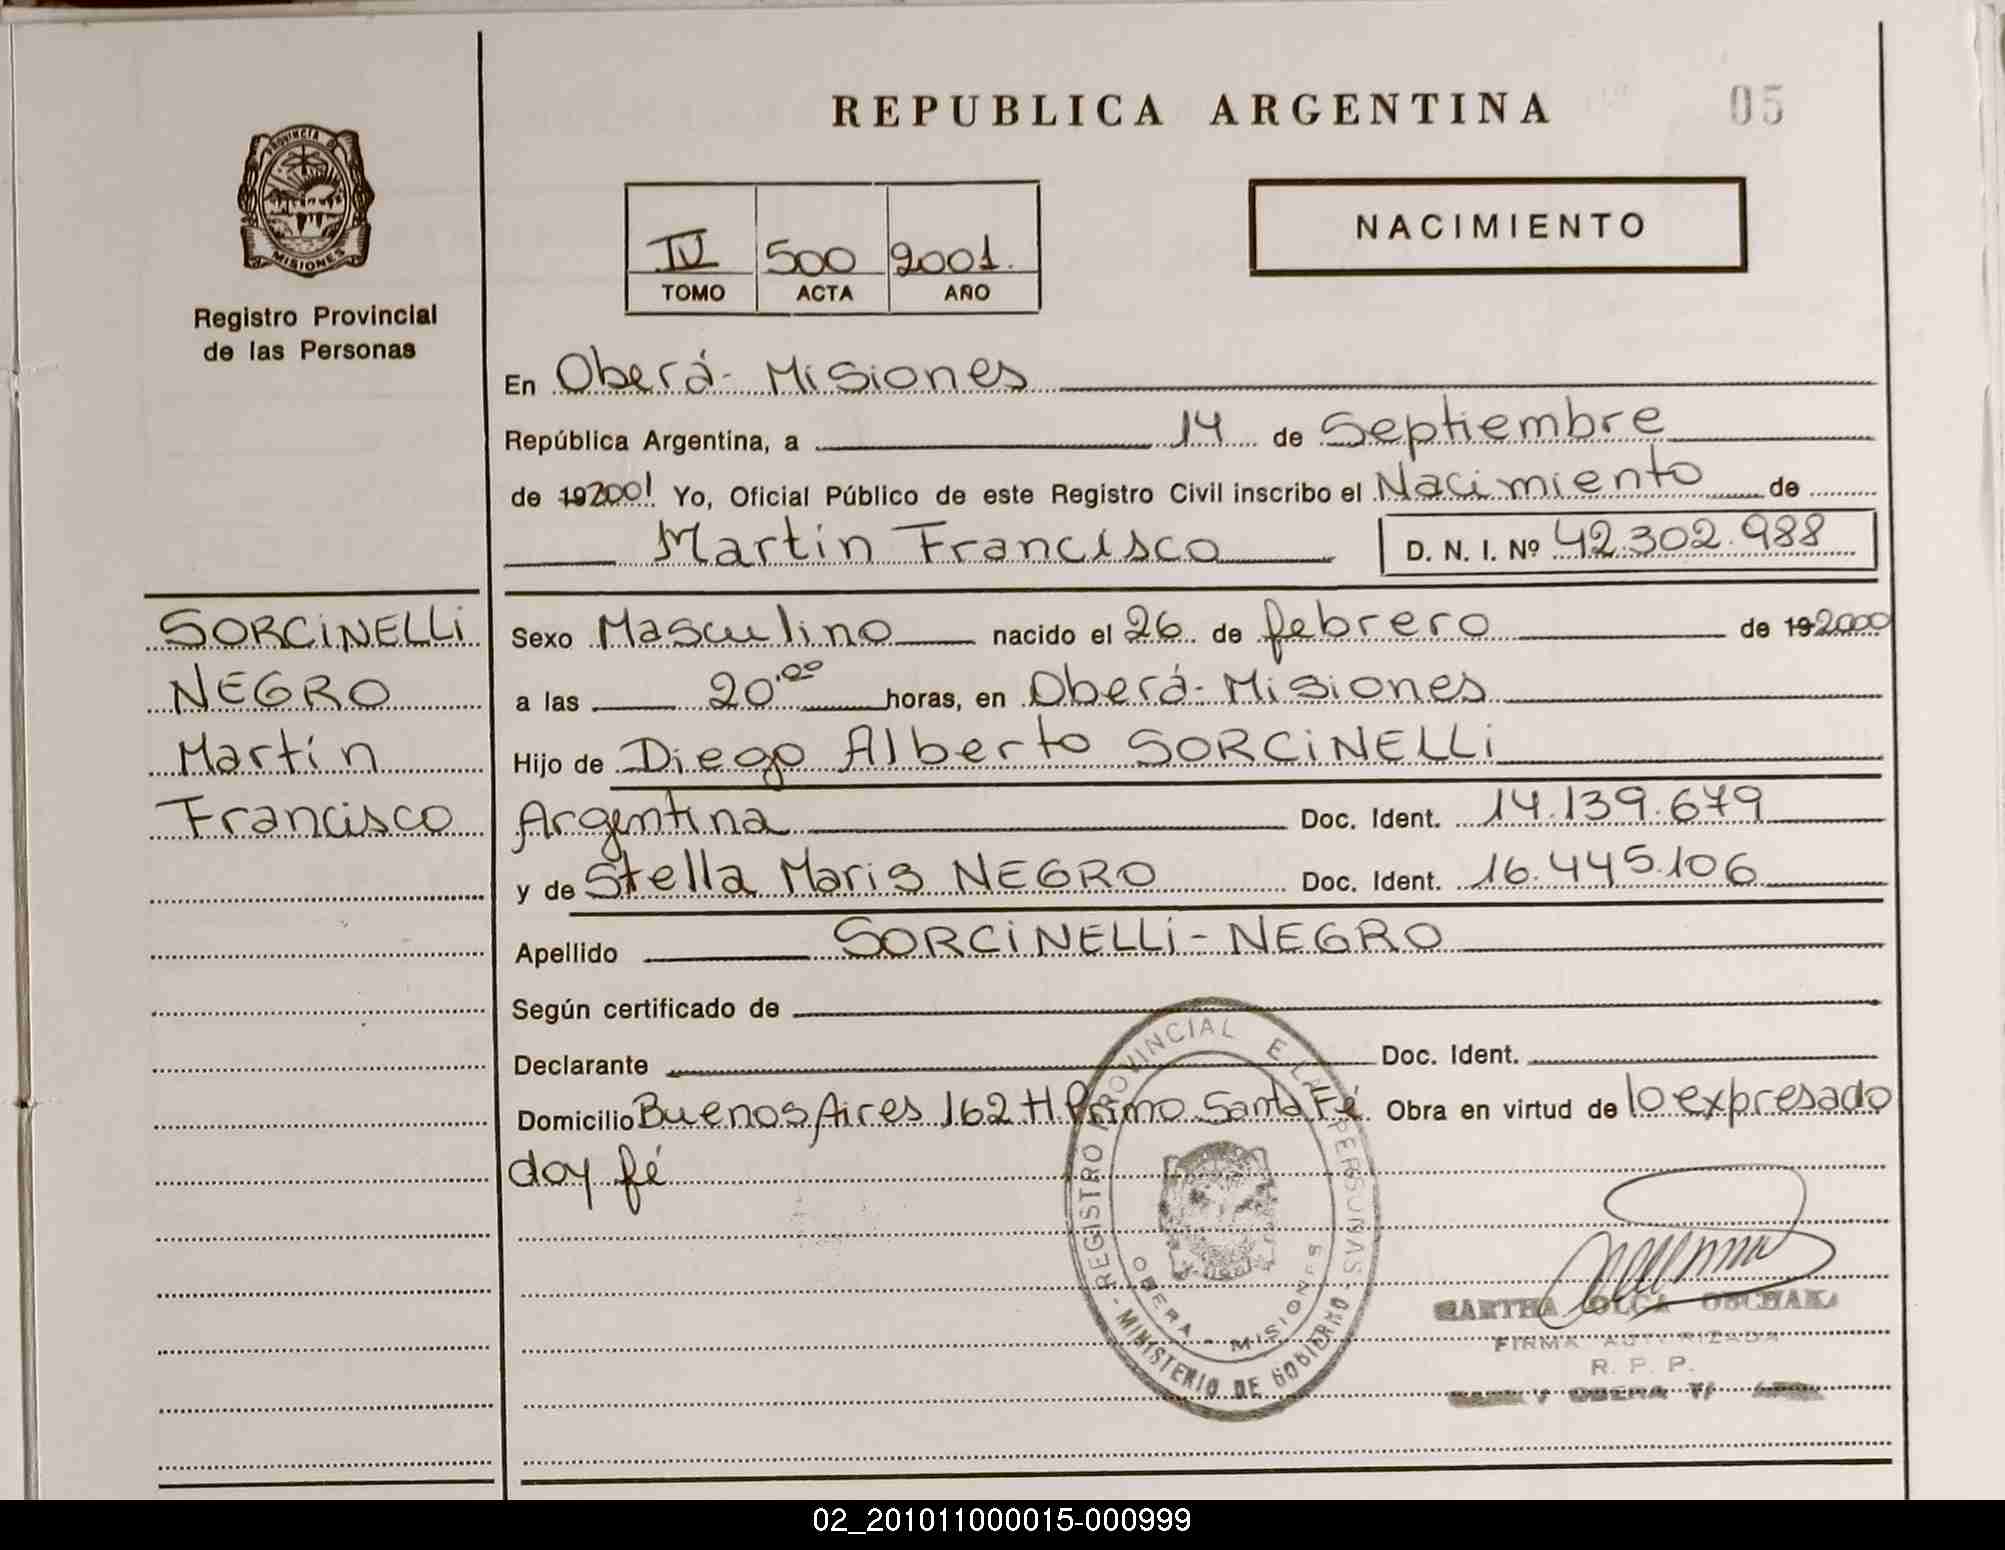 REPUBLICA ARGENTINA
05
PROVINCIA DE
MISIONES
Registro Provincial
de las Personas
IV 500 2001.
TOMO ACTA AÑO
NACIMIENTO
En Oberá - Misiones
República Argentina, a 14 de Septiembre
de 192001 Yo, Oficial Público de este Registro Civil inscribo el Nacimiento de
Martín Francisco D. N. I. Nº 42.302.988
SORCINELLI
NEGRO
Martín
Francisco
Sexo Masculino nacido el 26 de febrero de 192000
a las 20.00 horas, en Oberá - Misiones
Hijo de Diego Alberto SORCINELLI
Argentina Doc. Ident. 14.139.679
y de Stella Maris NEGRO Doc. Ident. 16.445.106
Apellido SORCINELLI - NEGRO
Según certificado de
Declarante Doc. Ident.
Domicilio Buenos Aires 162 H Primo Santa Fé Obra en virtud de lo expresado
doy fé
REGISTRO PROVINCIAL PERSONAS
OBERA - MISIONES
- MINISTERIO DE GOBIERNO -
MARTHA OLGA
FIRMA AUTORIZADA
R. P. P.
02_201011000015-000999